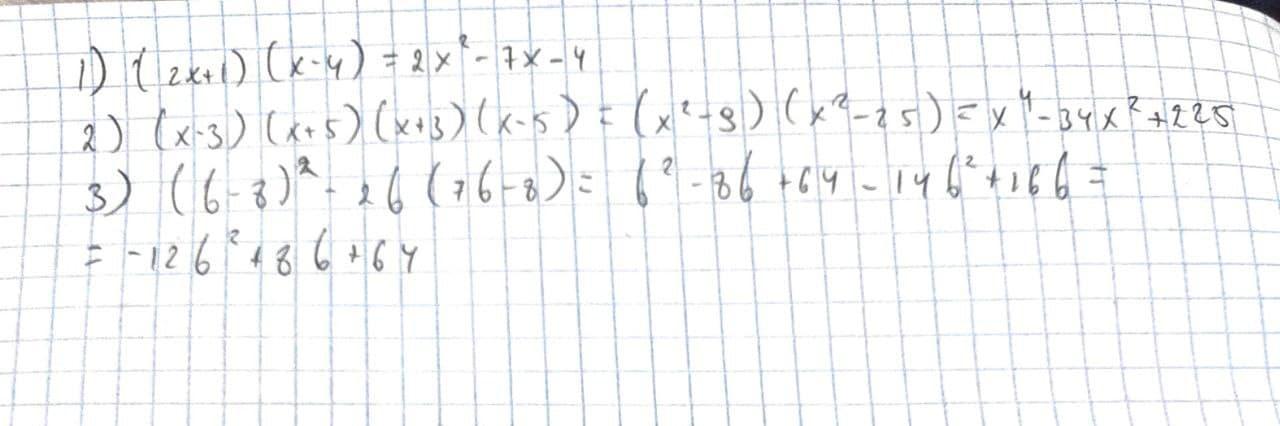 1) (2x+1)(x-4) = 2x² - 7x - 4
2) (x-3)(x+5)(x+3)(x-5) = (x²-9)(x²-25) = x⁴ - 34x² + 225
3) (b-8)² - 2b(7b-8) = b² - 8b + 64 - 14b² + 16b =
= -12b² + 8b + 64